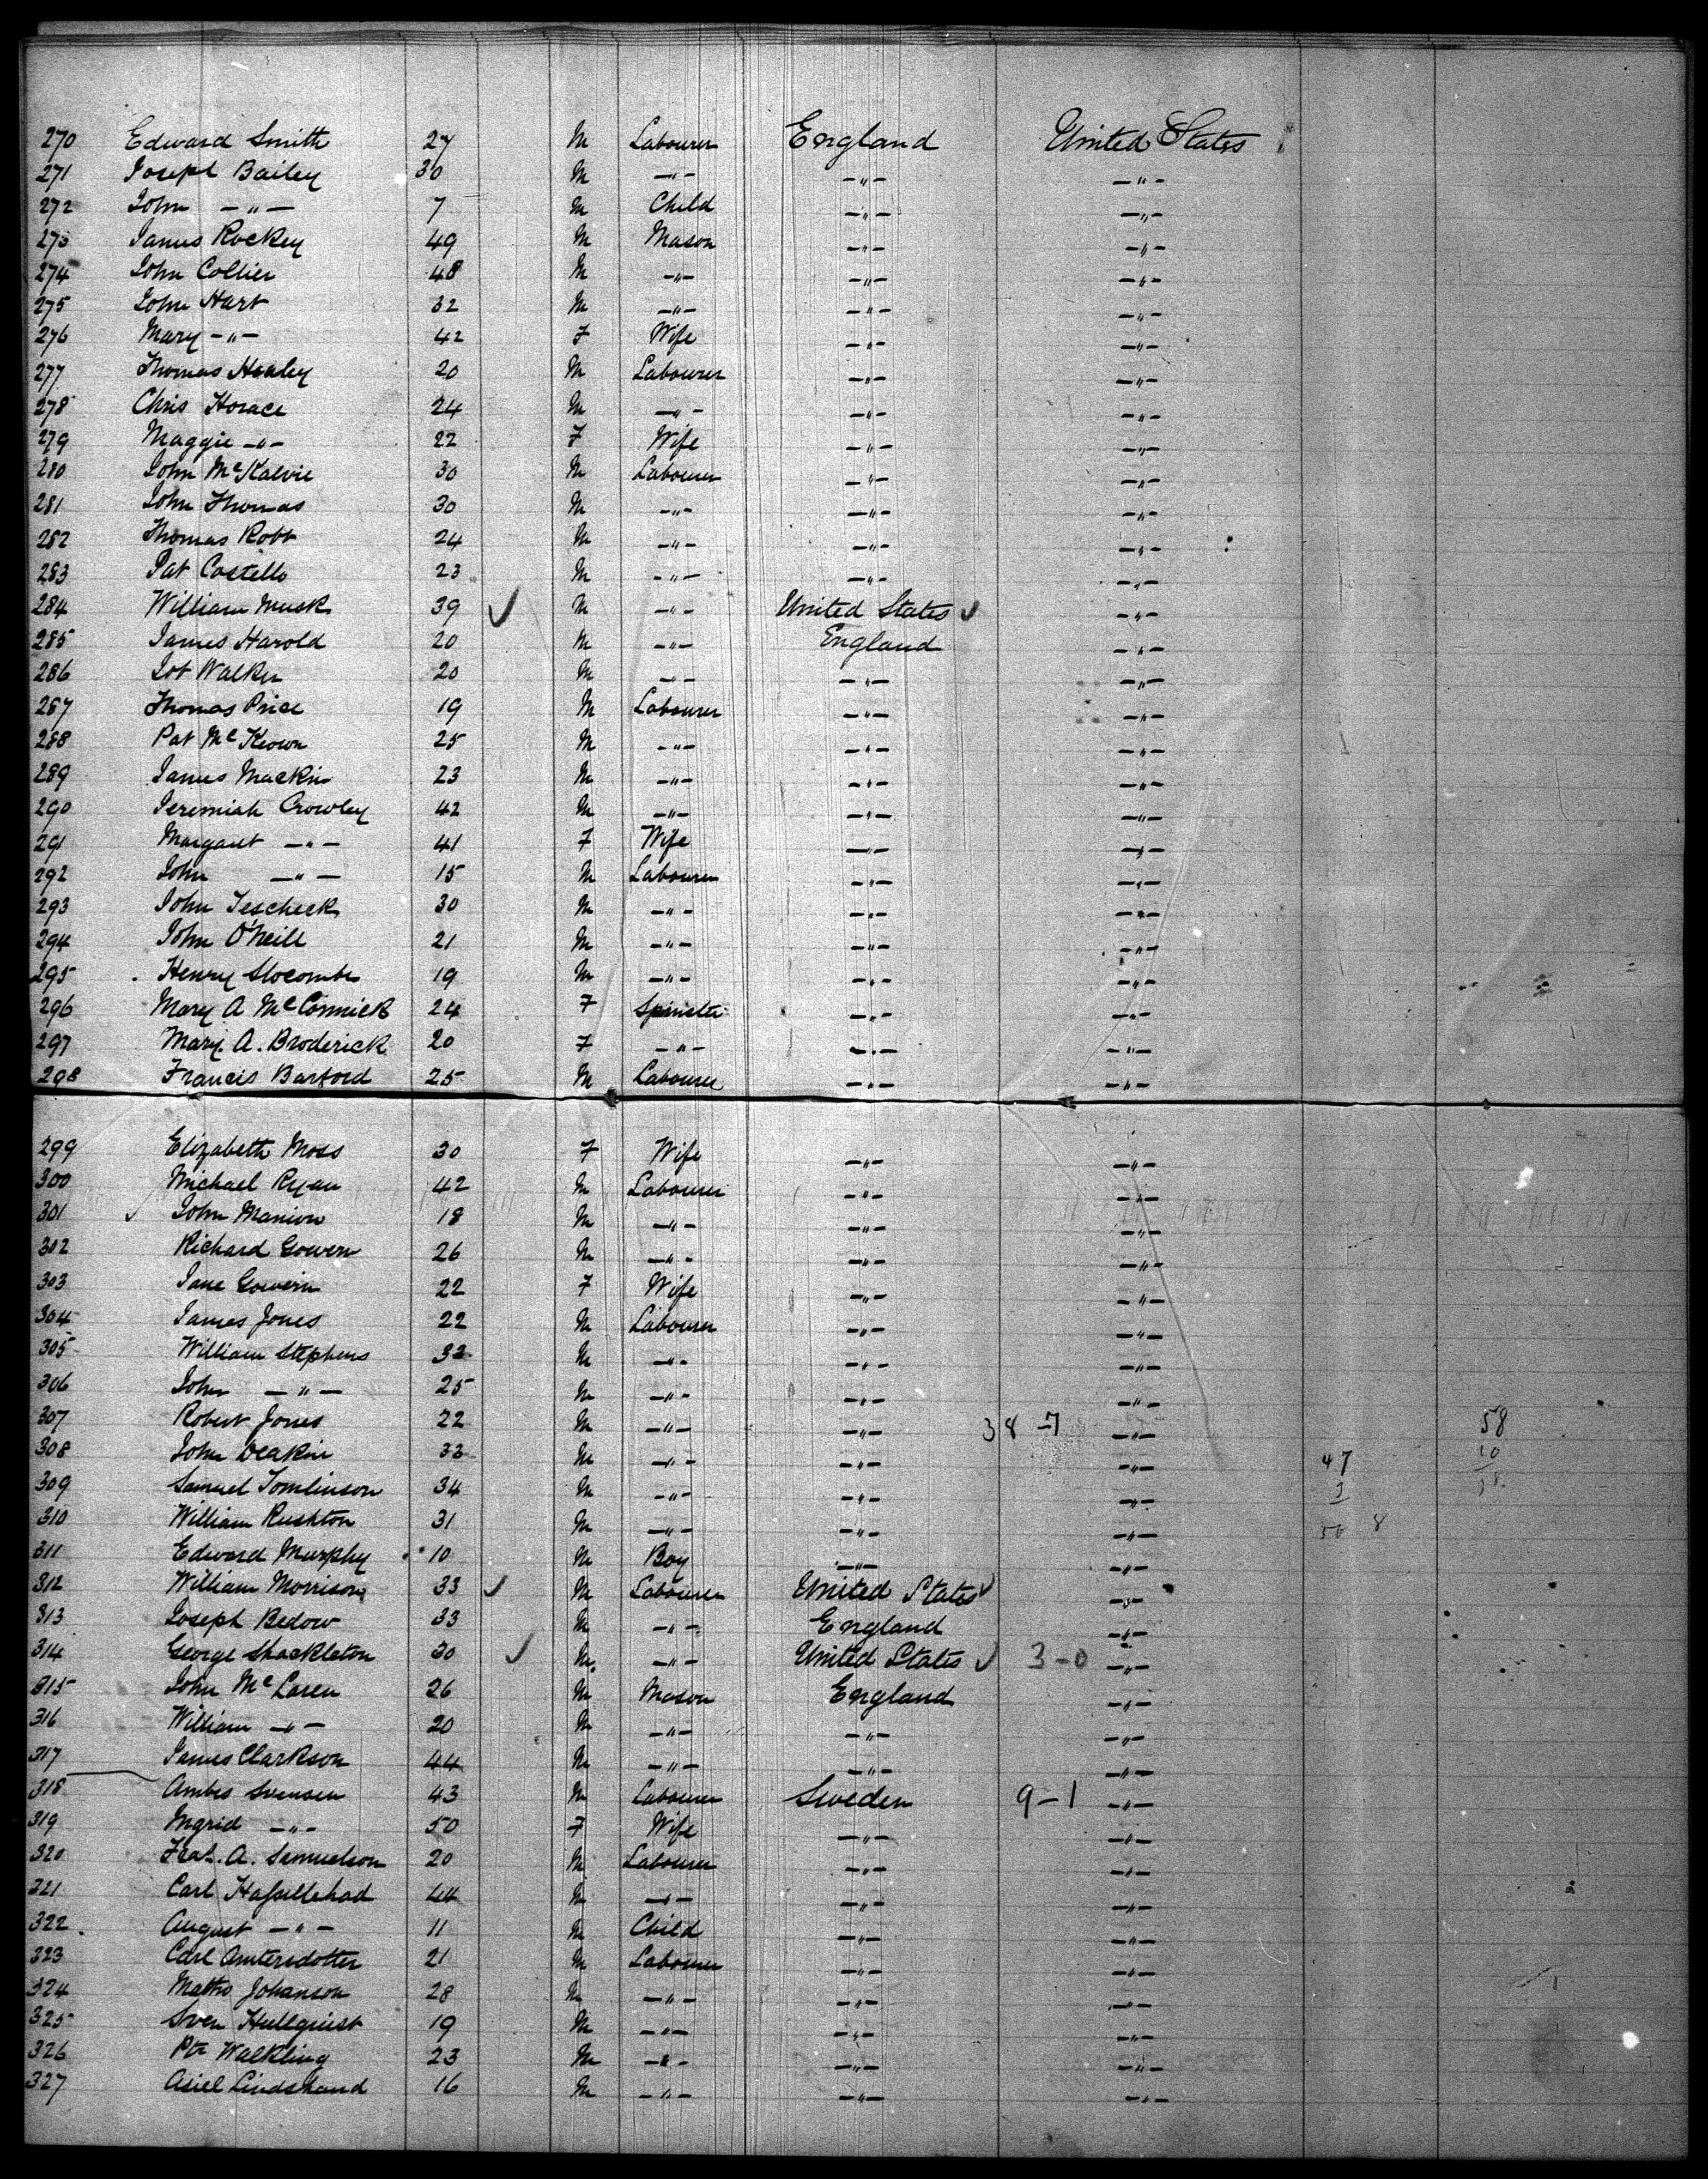 270 Edward Smith 27 M Labourer England United States
271 Joseph Bailey 30 M —"— —"— —"—
272 John —"— 7 M Child —"— —"—
273 James Rockey 49 M Mason —"— —"—
274 John Collier 48 M —"— —"— —"—
275 John Hart 32 M —"— —"— —"—
276 Mary —"— 42 F Wife —"— —"—
277 Thomas Healey 20 M Labourer —"— —"—
278 Chris Horace 24 M —"— —"— —"—
279 Maggie —"— 22 F Wife —"— —"—
280 John McKalvie 30 M Labourer —"— —"—
281 John Thomas 30 M —"— —"— —"—
282 Thomas Robt 24 M —"— —"— —"—
283 Pat Costello 23 M —"— —"— —"—
284 William Musk 39 ✓ M —"— United States ✓ —"—
285 James Harold 20 M —"— England —"—
286 Lot Walker 20 M —"— —"— —"—
287 Thomas Price 19 M Labourer —"— —"—
288 Pat McKeown 25 M —"— —"— —"—
289 James Mackin 23 M —"— —"— —"—
290 Jeremiah Crowley 42 M —"— —"— —"—
291 Margaret —"— 41 F Wife —"— —"—
292 John —"— 15 M Labourer —"— —"—
293 John Tescheck 30 M —"— —"— —"—
294 John O'Neill 21 M —"— —"— —"—
295 Henry Slocombe 19 M —"— —"— —"—
296 Mary A McCormick 24 F Spinster —"— —"—
297 Mary. A. Broderick 20 F —"— —"— —"—
298 Francis Barford 25 M Labourer —"— —"—
299 Elizabeth Moss 30 F Wife —"— —"—
300 Michael Ryan 42 M Labourer —"— —"—
301 ✓ John Manion 18 M —"— —"— —"—
302 Richard Gowern 26 M —"— —"— —"—
303 Jane Gowern 22 F Wife —"— —"—
304 James Jones 22 M Labourer —"— —"—
305 William Stephens 32 M —"— —"— —"—
306 John —"— 25 M —"— —"— —"—
307 Robert Jones 22 M —"— —"— 38-7 —"— 58
308 John Deakin 33 M —"— —"— —"— 47 10
309 Samuel Tomlinson 34 M —"— —"— —"— 3
310 William Rushton 31 M —"— —"— —"— 50 8
311 Edward Murphy 10 M Boy —"— —"—
312 William Morrison 33 ✓ M Labourer United States ✓ —"—
313 Joseph Bedow 33 M —"— England —"—
314 George Shackleton 30 ✓ M. —"— United States ✓ 3-0 —"—
315 John McLaren 26 M Mason England —"—
316 William —"— 20 M —"— —"— —"—
317 James Clarkson 44 M —"— —"— —"—
318 Ambes Svensen 43 M Labourer Sweden 9-1 —"—
319 Ingrid —"— 50 F Wife —"— —"—
320 A. Samuelson 20 M Labourer —"— —"—
321 Carl 44 M —"— —"— —"—
322 August —"— 11 M Child —"— —"—
323 Carl 21 M Labourer —"— —"—
324 Johanson 28 M —"— —"— —"—
325 Sven Hullquist 19 M —"— —"— —"—
326 Ptr Walkling 23 M —"— —"— —"—
327 16 M —"— —"— —"—